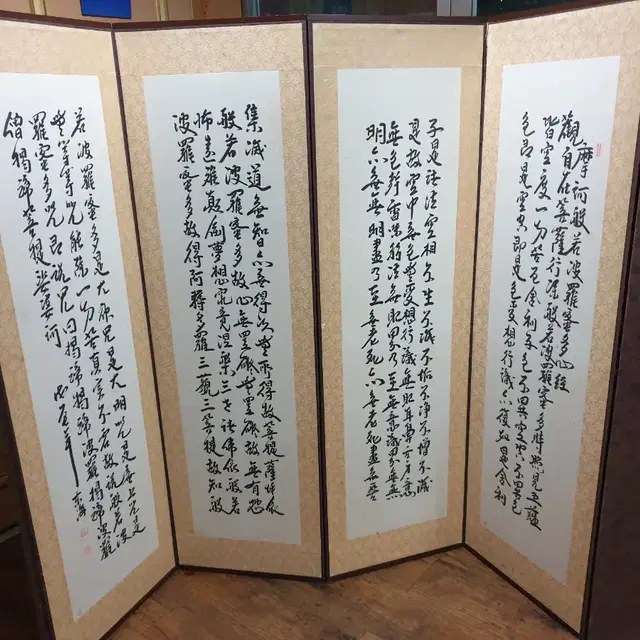 摩訶般若波羅蜜多心經
觀自在菩薩行深般若波羅蜜多時照見五蘊
皆空度一切苦厄舍利子色不異空空不異色
色即是空空即是色受想行識亦復如是舍利
子是諸法空相不生不滅不垢不淨不增不減
是故空中無色無受想行識無眼耳鼻舌身意
無色聲香味觸法無眼界乃至無意識界無無
明亦無無明盡乃至無老死亦無老死盡無苦
集滅道無智亦無得以無所得故菩提薩埵依
般若波羅蜜多故心無罣礙無罣礙故無有恐
怖遠離顛倒夢想究竟涅槃三世諸佛依般若
波羅蜜多故得阿耨多羅三藐三菩提故知般
若波羅蜜多是大神咒是大明咒是無上咒是
無等等咒能除一切苦真實不虛故說般若波
羅蜜多咒即說咒曰揭諦揭諦波羅揭諦波羅
僧揭諦菩提娑婆訶